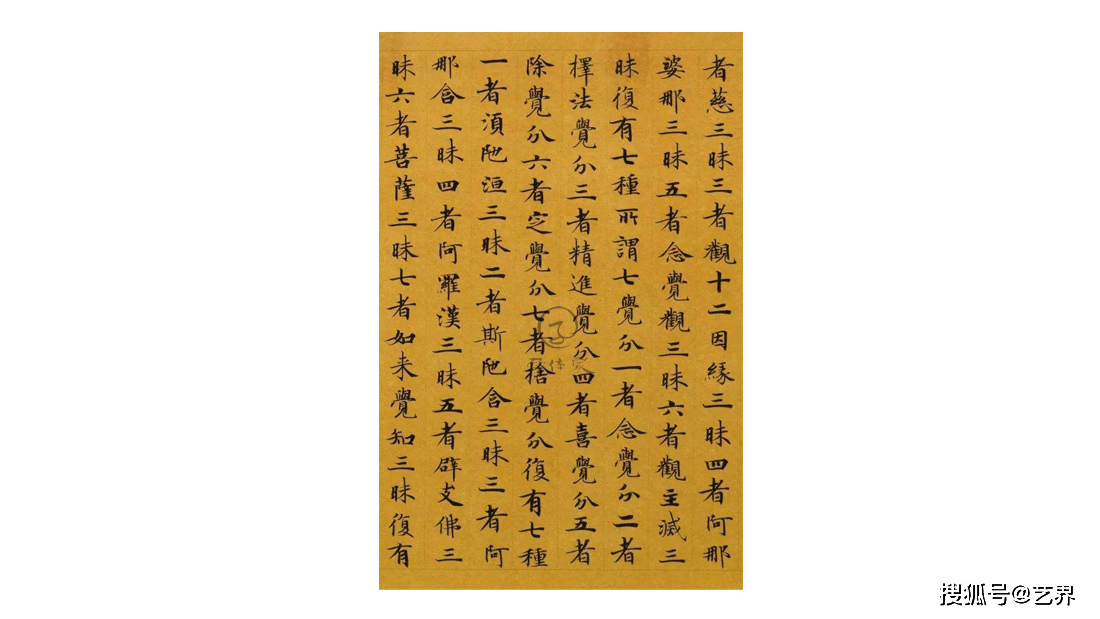 者慈三昧三者觀十二因緣三昧四者阿那
婆那三昧五者念覺觀三昧六者觀主滅三
昧復有七種所謂七覺分一者念覺分二者
擇法覺分三者精進覺分四者喜覺分五者
除覺分六者定覺分七者捨覺分復有七種
一者須陁洹三昧二者斯陁含三昧三者阿
那含三昧四者阿羅漢三昧五者辟支佛三
昧六者菩薩三昧七者如来覺知三昧復有
搜狐号@艺界